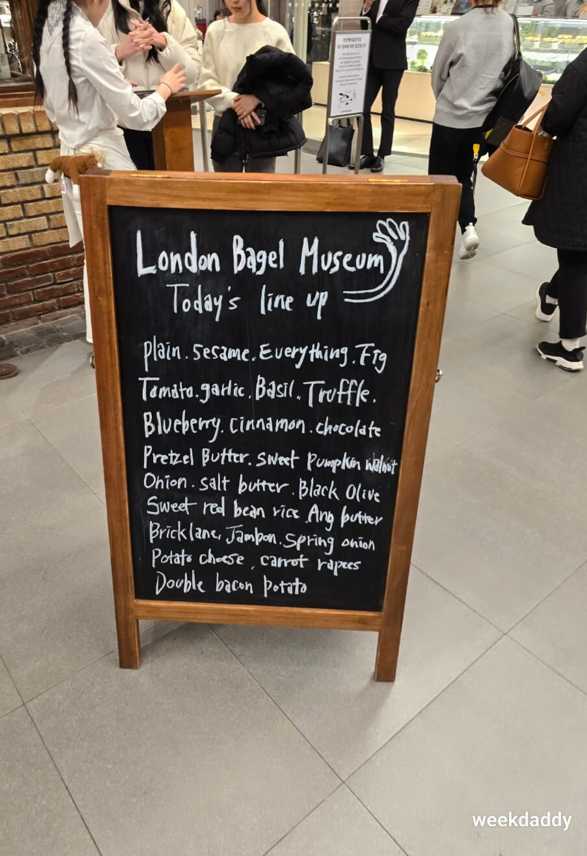 London Bagel Museum
Today's line up
plain. Sesame. Everything. Fig
Tomato. garlic. Basil. Truffle.
Blueberry. cinnamon. chocolate
Pretzel Butter. sweet pumpkin walnut
Onion. salt butter. Black Olive
Sweet red bean rice. Ang butter
Bricklane, Jambon. Spring onion
Potato cheese, carrot rapees
Double bacon potato
weekdaddy